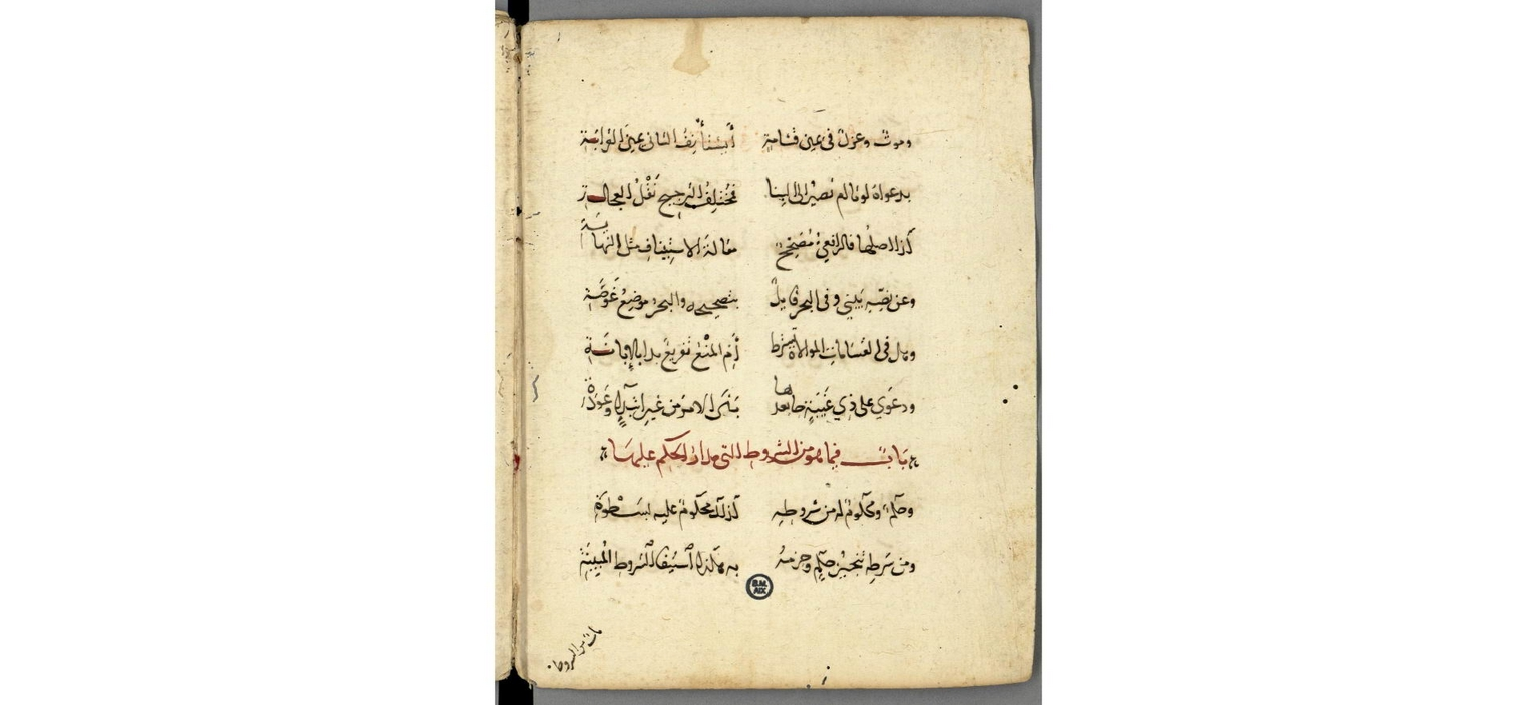 وموت وعزل في يمين قسامة أبينا نف الثاني يمين الوراثة
بدعواة لو ما لم نصير الى البنا فمختلف الترجيح نقل العجالة
كذا لاصلها فالرافعي مصحح مقالة الاستيناف مثل النهاية
وعن نصه يبني وفي البحر قايل بتصحيحه والبحر موضع غوصة
وهل في القسامات الموالاة يشترط أم المنع تفريع بدا بالإبانة
ودعوي على ذي غيبة من غير وعودة
باب فيما هو من الشروط التي مدار الحكم عليها
وحكم ومحكوم له من شروطه كذلك محكوم عليه بسطوة
ومن شرطه تنجيز حكم وجزمه به هكذا استيفا الشروط المبينة
B.M. AIX